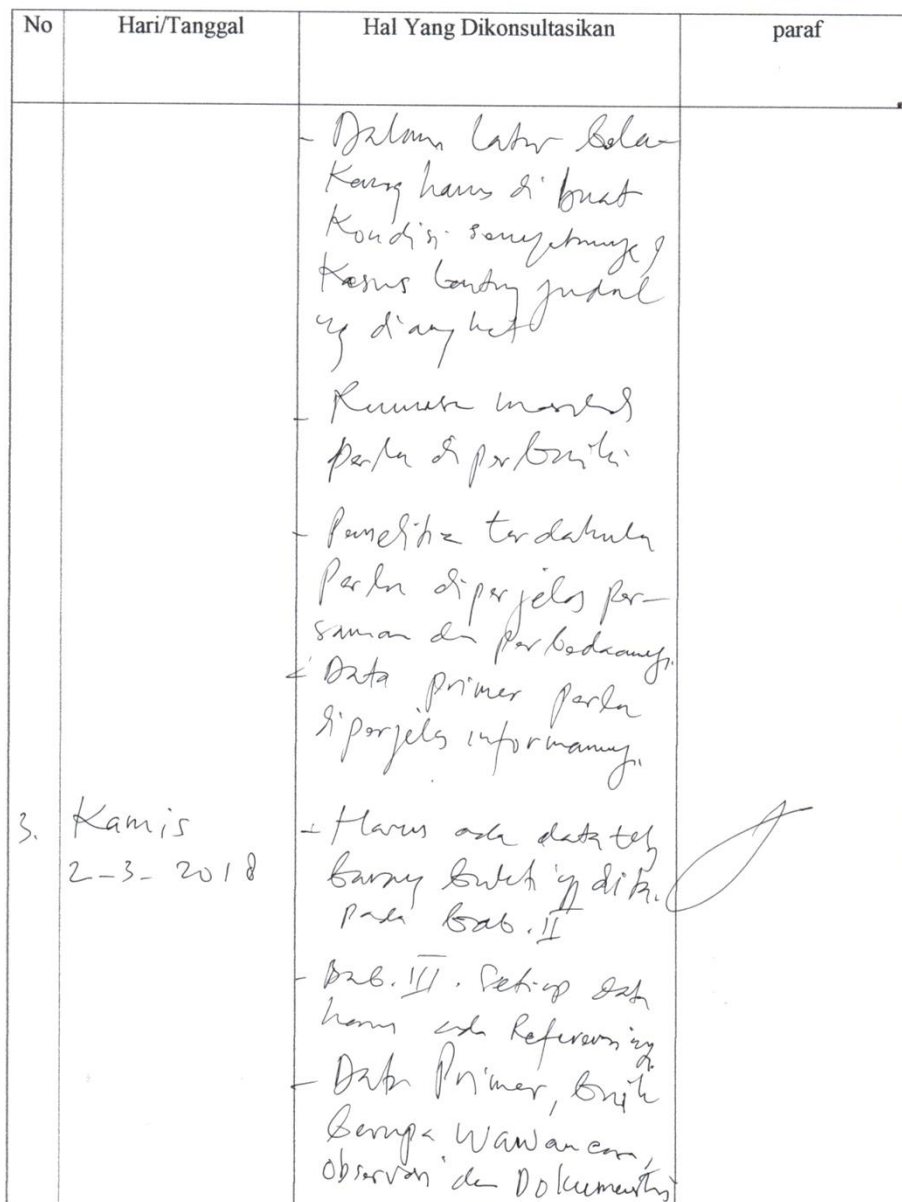 No Hari/Tanggal Hal Yang Dikonsultasikan paraf
- Dalam latar bela-
kang harus di buat
Kondisi
Kasus tentang judul
yg diangkat
- Rumusan masalah
perlu diperbaiki
- Penelitia terdahulu
Perlu diperjelas per-
samaan dan perbedaanny.
- Data primer perlu
diperjelas informanny.
3. Kamis - Harus ada data ttg
2-3-2018 barang bukti yg
pada Bab. II
- Bab. III. Setiap data
harus ada Referensiny
- Data Primer, baik
berupa Wawancara,
observasi dan Dokumentasi